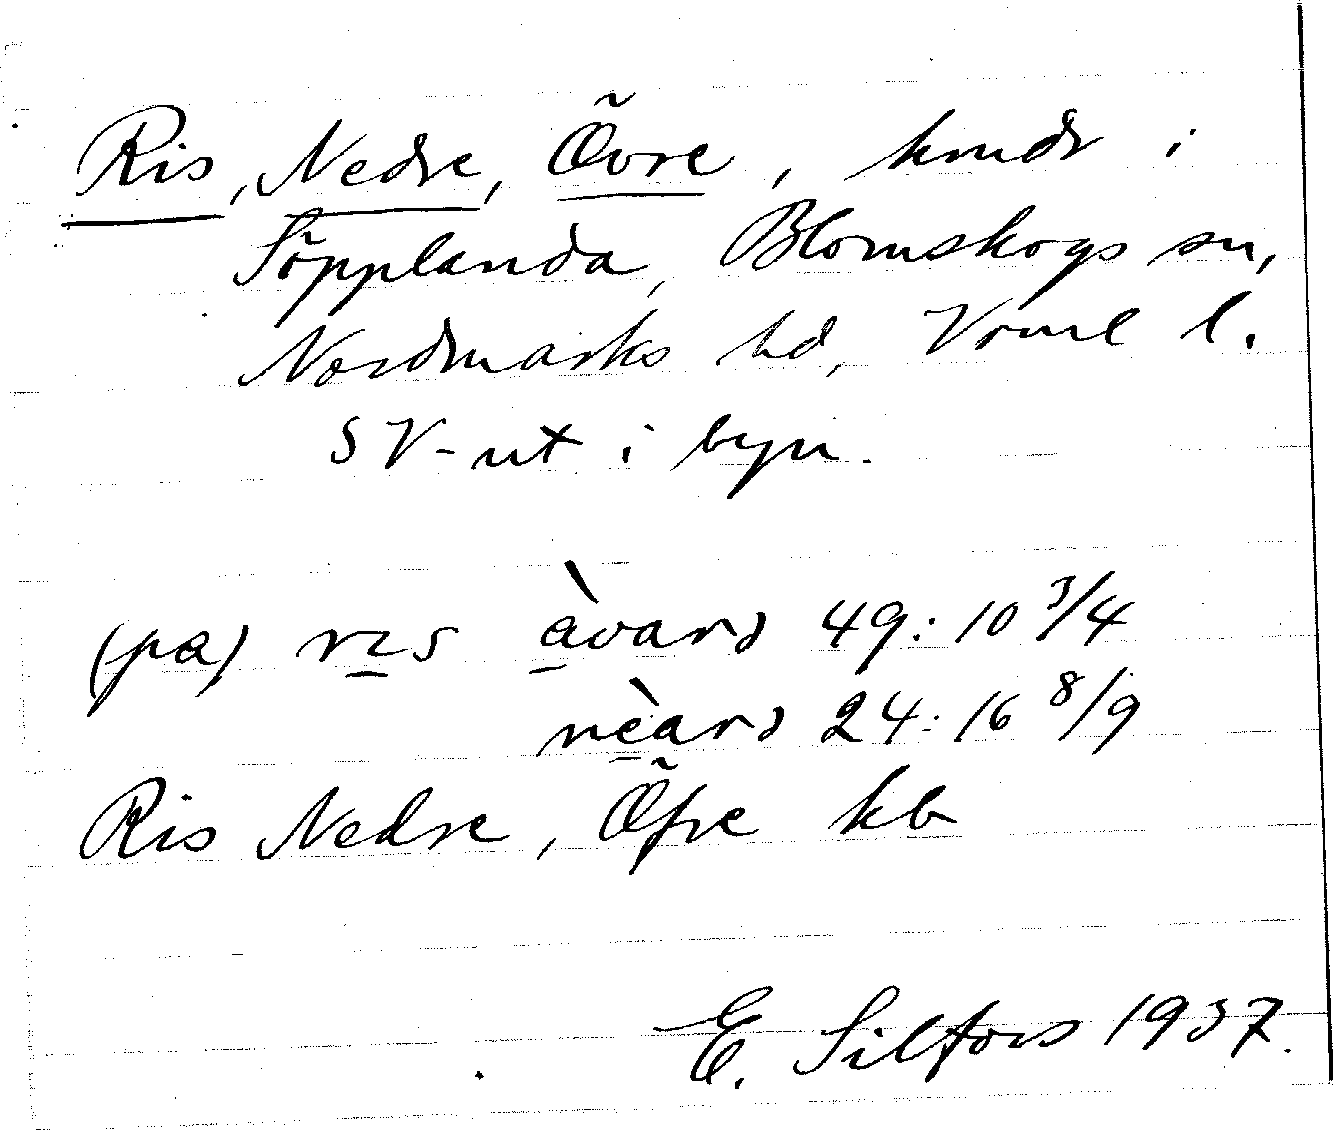 Ris, Nedre, Övre, hmdr i
Söpplanda, Blomskogs sn,
Nordmarks hd, Vrml l.
SV-ut i byn.
(pa) rɩs àvarə 49:10 3/4
nèarə 24:16 8/9
Ris Nedre, Öfre kb
E. Silfors 1937.